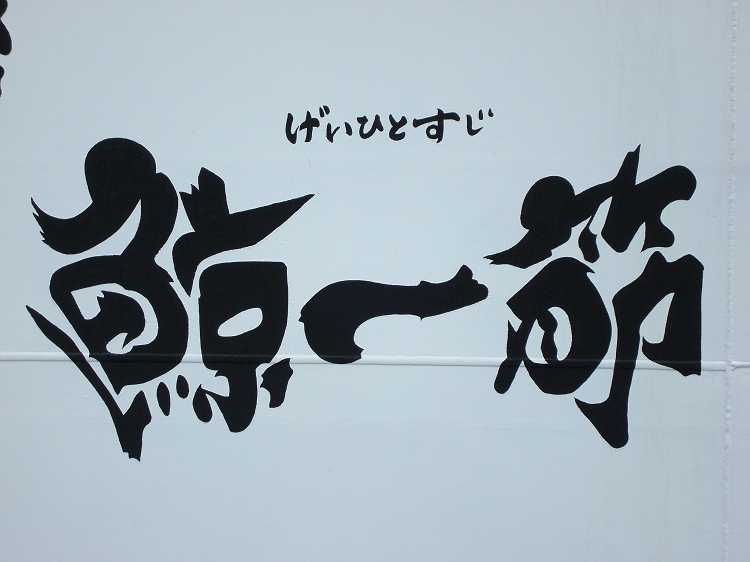 げいひとすじ
鯨一節